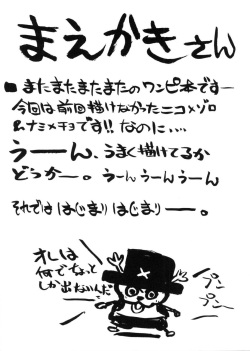 まえかきさん
■またまたまたまたのワンピ本ですー
今回は前回描けなかったニコ×ゾロ
&ナミ×チョです!!なのに…
うーーん、うまく描けてるか
どうかー。うーんうーんうーん
それでは はじまりはじまりーー。
オレは
何でちょっと
しか出ないんだ
プン
プンー